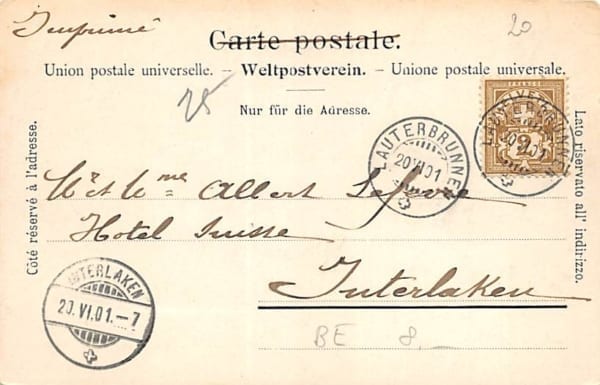 Imprimé
20
Carte postale.
Union postale universelle. – Weltpostverein. – Unione postale universale.
25
Nur für die Adresse.
Côté réservé à l'adresse.
Lato riservato all' indirizzo.
LAUTERBRUNNEN
20 VI 01
LAUTERBRUNNEN
20 VI 01
2
Mr et Mme Albert
Hotel Suisse
Interlaken
INTERLAKEN
20. VI. 01. – 7
BE 8.–